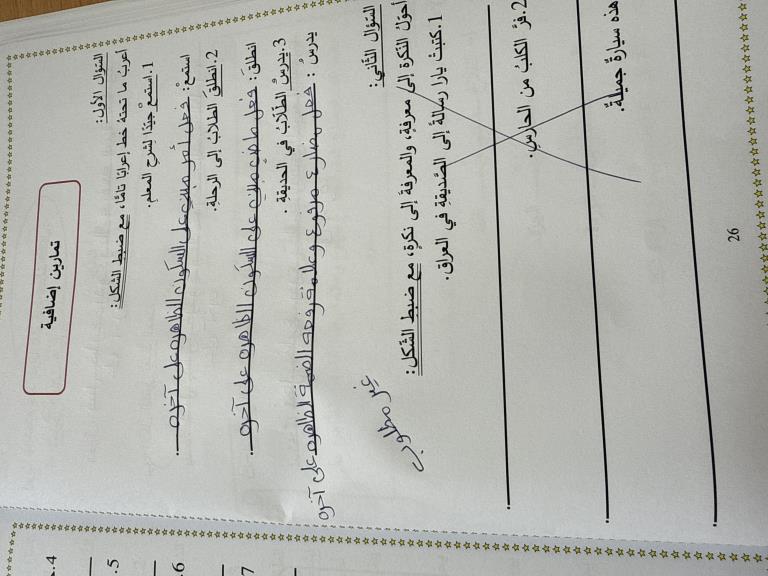 تمارين إضافية
السؤال الأول:
أعربْ ما تحتهُ خط إعرابًا تامًّا، مع ضبط الشكل:
1.استمعْ جيّدًا لشرح المعلمِ.
استمعْ: فعل أمر مبني على السكون الظاهره على آخره.
2.انطلقَ الطلابُ إلى الرحلةِ.
انطلقَ: فعل ماضٍ مبني على السكون الظاهره على آخره.
3.يدرسُ الطّلّابُ في الحديقةِ.
يدرسُ: فعل مضارع مرفوع وعلامة رفعه الضمة الظاهره على آخره
السّؤال الثّاني:
أحوّلُ النّكرةَ إلى معرفةٍ، والمعرفةَ إلى نكرةٍ، مع ضبطِ الشّكل:
غير مطلوب
1.كتبتْ يارا رسالةً إلى الصّديقةِ في العراق.
2.فرَّ الكلبُ من الحارسِ.
هذه سيارةٌ جميلةٌ.
26
4.
5.
6
7